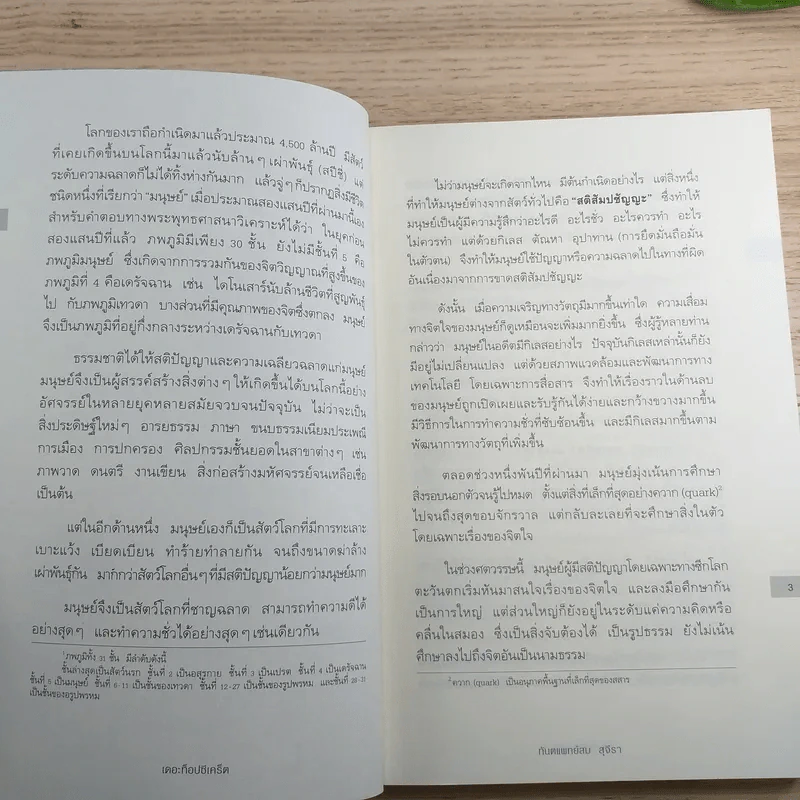 โลกของเราถือกำเนิดมาแล้วประมาณ 4,500 ล้านปี มีสัตว์
ที่เคยเกิดขึ้นบนโลกนี้มาแล้วนับล้านๆ เผ่าพันธุ์ (สปีชี) แต่
ระดับความฉลาดก็ไม่ได้ทิ้งห่างกันมาก แล้วจู่ๆ ก็ปรากฏสิ่งมีชีวิต
ชนิดหนึ่งที่เรียกว่า “มนุษย์” เมื่อประมาณสองแสนปีที่ผ่านมานี้เอง
สำหรับคำตอบทางพระพุทธศาสนาวิเคราะห์ได้ว่า ในยุคก่อน
สองแสนปีที่แล้ว ภพภูมิมีเพียง 30 ชั้น ยังไม่มีชั้นที่ 5 คือ
ภพภูมิมนุษย์ ซึ่งเกิดจากการรวมกันของจิตวิญญาณที่สูงขึ้นของ
ภพภูมิที่ 4 คือเดรัจฉาน เช่น ไดโนเสาร์นับล้านชีวิตที่สูญพันธุ์
ไป กับภพภูมิเทวดา บางส่วนที่มีคุณภาพของจิตซึ่งตกลง มนุษย์
จึงเป็นภพภูมิที่อยู่กึ่งกลางระหว่างเดรัจฉานกับเทวดา
ธรรมชาติได้ให้สติปัญญาและความเฉลียวฉลาดแก่มนุษย์
มนุษย์จึงเป็นผู้สรรค์สร้างสิ่งต่างๆ ให้เกิดขึ้นได้บนโลกนี้อย่าง
อัศจรรย์ในหลายยุคหลายสมัยจวบจนปัจจุบัน ไม่ว่าจะเป็น
สิ่งประดิษฐ์ใหม่ๆ อารยธรรม ภาษา ขนบธรรมเนียมประเพณี
การเมือง การปกครอง ศิลปกรรมชั้นยอดในสาขาต่างๆ เช่น
ภาพวาด ดนตรี งานเขียน สิ่งก่อสร้างมหัศจรรย์จนเหลือเชื่อ
เป็นต้น
แต่ในอีกด้านหนึ่ง มนุษย์เองก็เป็นสัตว์โลกที่มีการทะเลาะ
เบาะแว้ง เบียดเบียน ทำร้ายทำลายกัน จนถึงขนาดฆ่าล้าง
เผ่าพันธุ์กัน มากกว่าสัตว์โลกอื่นๆ ที่มีสติปัญญาน้อยกว่ามนุษย์มาก
มนุษย์จึงเป็นสัตว์โลกที่ชาญฉลาด สามารถทำความดีได้
อย่างสุดๆ และทำความชั่วได้อย่างสุดๆ เช่นเดียวกัน
¹ภพภูมิทั้ง 31 ชั้น มีลำดับดังนี้
ชั้นล่างสุดเป็นสัตว์นรก ชั้นที่ 2 เป็นอสุรกาย ชั้นที่ 3 เป็นเปรต ชั้นที่ 4 เป็นเดรัจฉาน
ชั้นที่ 5 เป็นมนุษย์ ชั้นที่ 6-11 เป็นชั้นของเทวดา ชั้นที่ 12-27 เป็นชั้นของรูปพรหม และชั้นที่ 28-31
เป็นชั้นของอรูปพรหม
เดอะท็อปซีเคร็ต
ไม่ว่ามนุษย์จะเกิดจากไหน มีต้นกำเนิดอย่างไร แต่สิ่งหนึ่ง
ที่ทำให้มนุษย์ต่างจากสัตว์ทั่วไปคือ “สติสัมปชัญญะ” ซึ่งทำให้
มนุษย์เป็นผู้มีความรู้สึกว่าอะไรดี อะไรชั่ว อะไรควรทำ อะไร
ไม่ควรทำ แต่ด้วยกิเลส ตัณหา อุปาทาน (การยึดมั่นถือมั่น
ในตัวตน) จึงทำให้มนุษย์ใช้ปัญญาหรือความฉลาดไปในทางที่ผิด
อันเนื่องมาจากการขาดสติสัมปชัญญะ
ดังนั้น เมื่อความเจริญทางวัตถุมีมากขึ้นเท่าใด ความเสื่อม
ทางจิตใจของมนุษย์ก็ดูเหมือนจะเพิ่มมากยิ่งขึ้น ซึ่งผู้รู้หลายท่าน
กล่าวว่า มนุษย์ในอดีตมีกิเลสอย่างไร ปัจจุบันกิเลสเหล่านั้นก็ยัง
มีอยู่ไม่เปลี่ยนแปลง แต่ด้วยสภาพแวดล้อมและพัฒนาการทาง
เทคโนโลยี โดยเฉพาะการสื่อสาร จึงทำให้เรื่องราวในด้านลบ
ของมนุษย์ถูกเปิดเผยและรับรู้กันได้ง่ายและกว้างขวางมากขึ้น
มีวิธีการในการทำความชั่วที่ซับซ้อนขึ้น และมีกิเลสมากขึ้นตาม
พัฒนาการทางวัตถุที่เพิ่มขึ้น
ตลอดช่วงหนึ่งพันปีที่ผ่านมา มนุษย์มุ่งเน้นการศึกษา
สิ่งรอบนอกตัวจนรู้ไปหมด ตั้งแต่สิ่งที่เล็กที่สุดอย่างควาก (quark)²
ไปจนถึงสุดขอบจักรวาล แต่กลับละเลยที่จะศึกษาสิ่งในตัว
โดยเฉพาะเรื่องของจิตใจ
ในช่วงศตวรรษนี้ มนุษย์ผู้มีสติปัญญาโดยเฉพาะทางซีกโลก
ตะวันตกเริ่มหันมาสนใจเรื่องของจิตใจ และลงมือศึกษากัน
เป็นการใหญ่ แต่ส่วนใหญ่ก็ยังอยู่ในระดับแค่ความคิดหรือ
คลื่นในสมอง ซึ่งเป็นสิ่งจับต้องได้ เป็นรูปธรรม ยังไม่เน้น
ศึกษาลงไปถึงจิตอันเป็นนามธรรม
² ควาก (quark) เป็นอนุภาคพื้นฐานที่เล็กที่สุดของสสาร
ทันตแพทย์สม สุจีรา
3